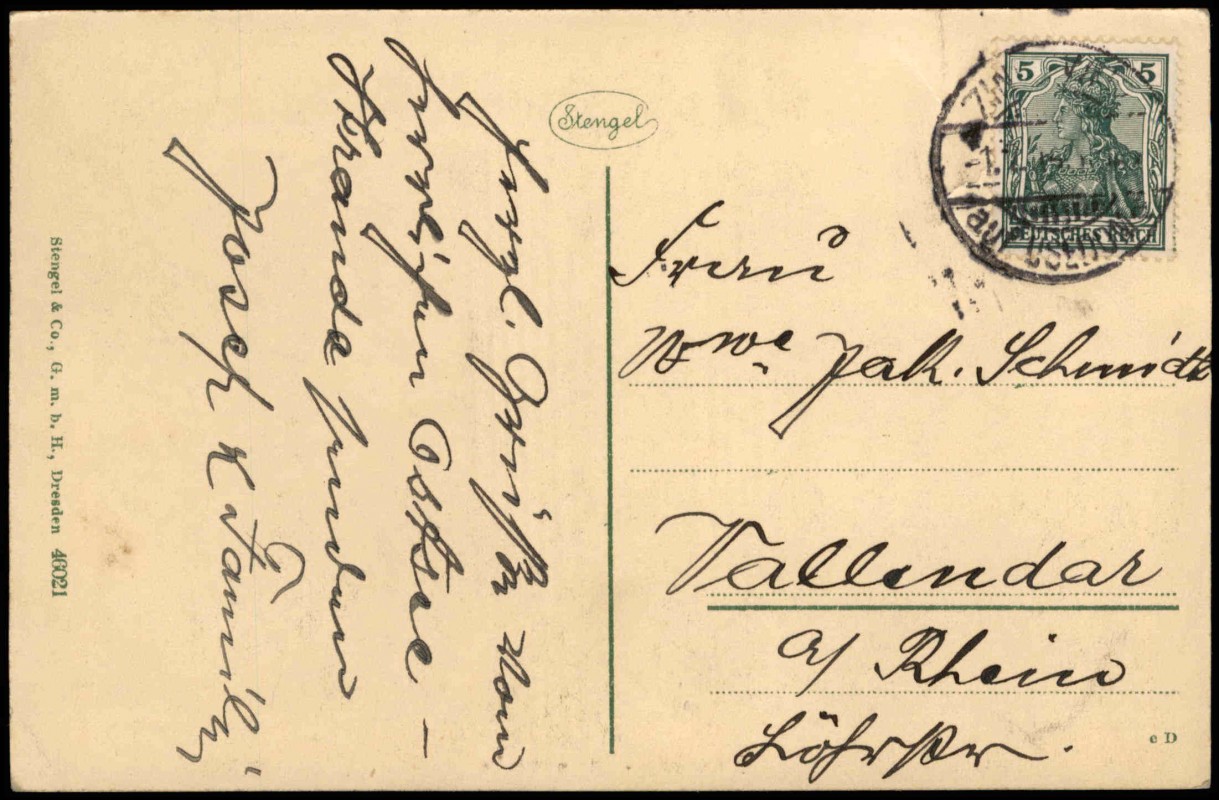 Herzl. Grüße vom
herrlichen Ostsee-
Strande senden
Josef & Familie
Stengel
Stengel & Co., G. m. b. H., Dresden 46021
5 5
DEUTSCHES REICH
auf USEDOM
Frau
Wwe Jak. Schmidt
Vallendar
a/ Rhein
Löhrstr.
e D